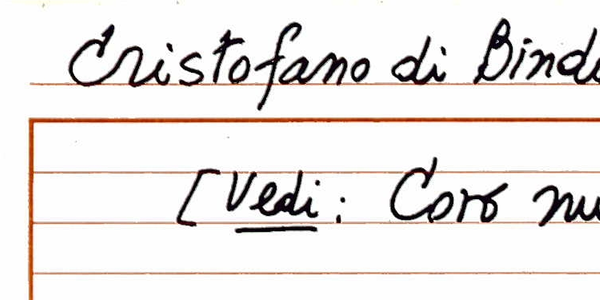 Cristofano di Bind
[Vedi: Coro nu